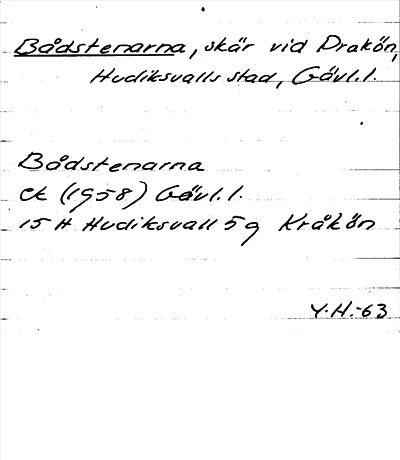 Bådstenarna, skär vid Drakön,
Hudiksvalls stad, Gävl.l.
Bådstenarna
Ek (1958) Gävl.l.
15 H Hudiksvall 5 g Kråkön
Y.H.-63